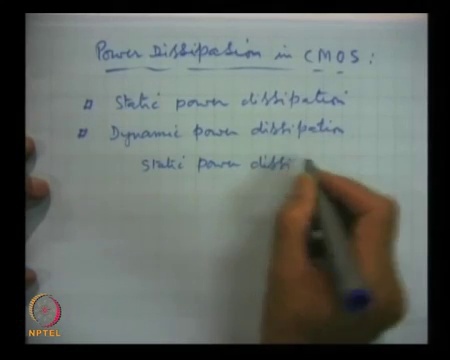 Power Dissipation in CMOS:
Static power dissipation
Dynamic power dissipation
Static power dissi
NPTEL